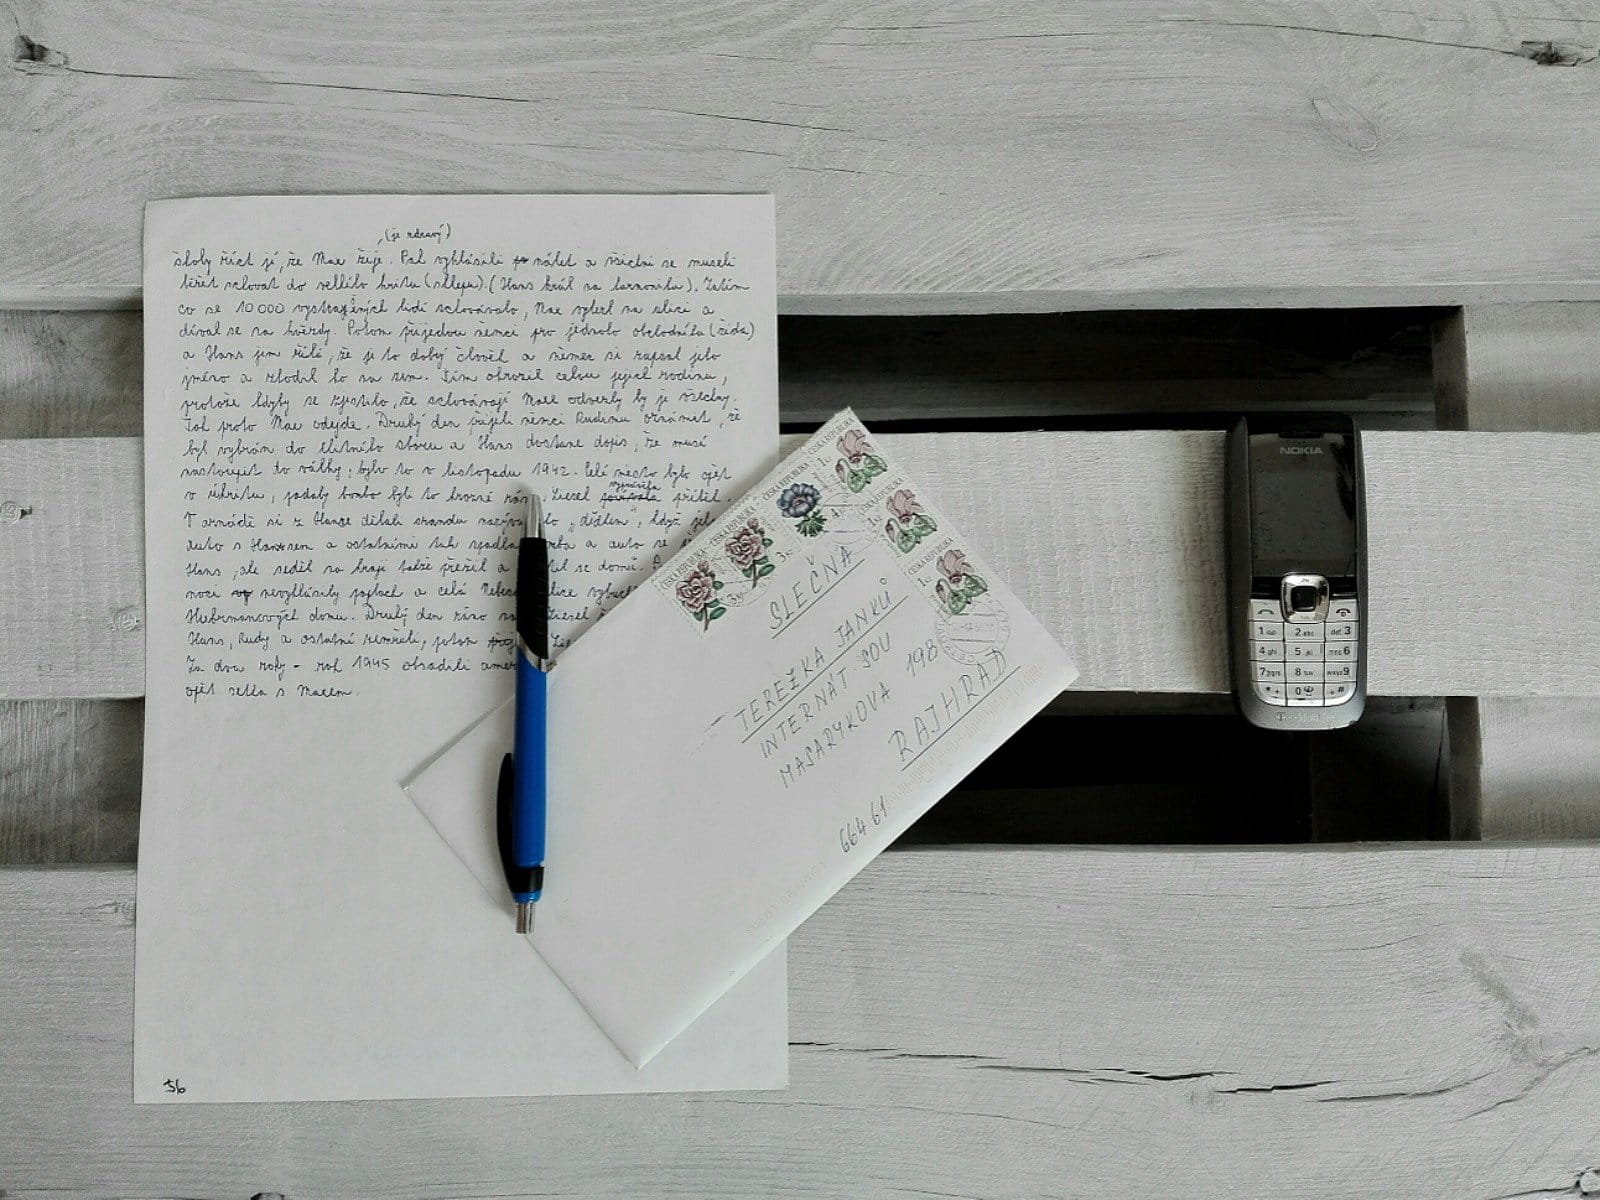 , (je zdravý)
školy říct jí, že Max žije. Pak vyhlásili nálet a všichni se museli
běžet schovat do velkého krytu (sklepu). (Hans hrál na harmoniku). Zatím
co se 10 000 vystrašených lidí schovávalo, Max vyběhl na ulici a
díval se na hvězdy. Potom přijedou němci pro jednoho obchodníka (žida)
a Hans jim řekl, že je to dobrý člověk a němec si zapsal jeho
jméno a shodil ho na zem. Tím ohrozil celou jejich rodinu,
protože kdyby se zjistilo, že schovávají Maxe odvezly by je všechny.
Tak proto Max odejde. Druhý den přijeli němci Rudimu oznámit, že
byl vybrán do elitního sboru a Hans dostane dopis, že musí
nastoupit do války, bylo to v listopadu 1942. Celé město bylo opět
v úkrytu, padaly bomby byly to hrozné Liesel vyprávěla příběh.
V armádě si z Hanse dělali srandu „dědkem", když jelo
auto s Hansem a ostatními tak spadla a auto se
Hans, ale seděl na kraji takže přežil a se domů.
noci nevyhlásily poplach a celá
Hubermanových domu. Druhý den ráno Liesel
Hans, Rudy a ostatní zemřeli, potom
Za dva roky - rok 1945 obsadili
opět setká s Maxem.
56
ČESKÁ REPUBLIKA
3 Kč
ČESKÁ REPUBLIKA
3 Kč
ČESKÁ REPUBLIKA
4
ČESKÁ REPUBLIKA
1 Kč
ČESKÁ REPUBLIKA
1 Kč
ČESKÁ REPUBLIKA
1 Kč
SLEČNA
TEREŽKA JANKŮ
INTERNÁT SOU
MASARYKOVA 198
RAJHRAD
664 61
NOKIA
1
2 abc
def 3
4 ghi
5 jkl
mno 6
7 pqrs
8 tuv
wxyz 9
* +
0
#
T-Mobile